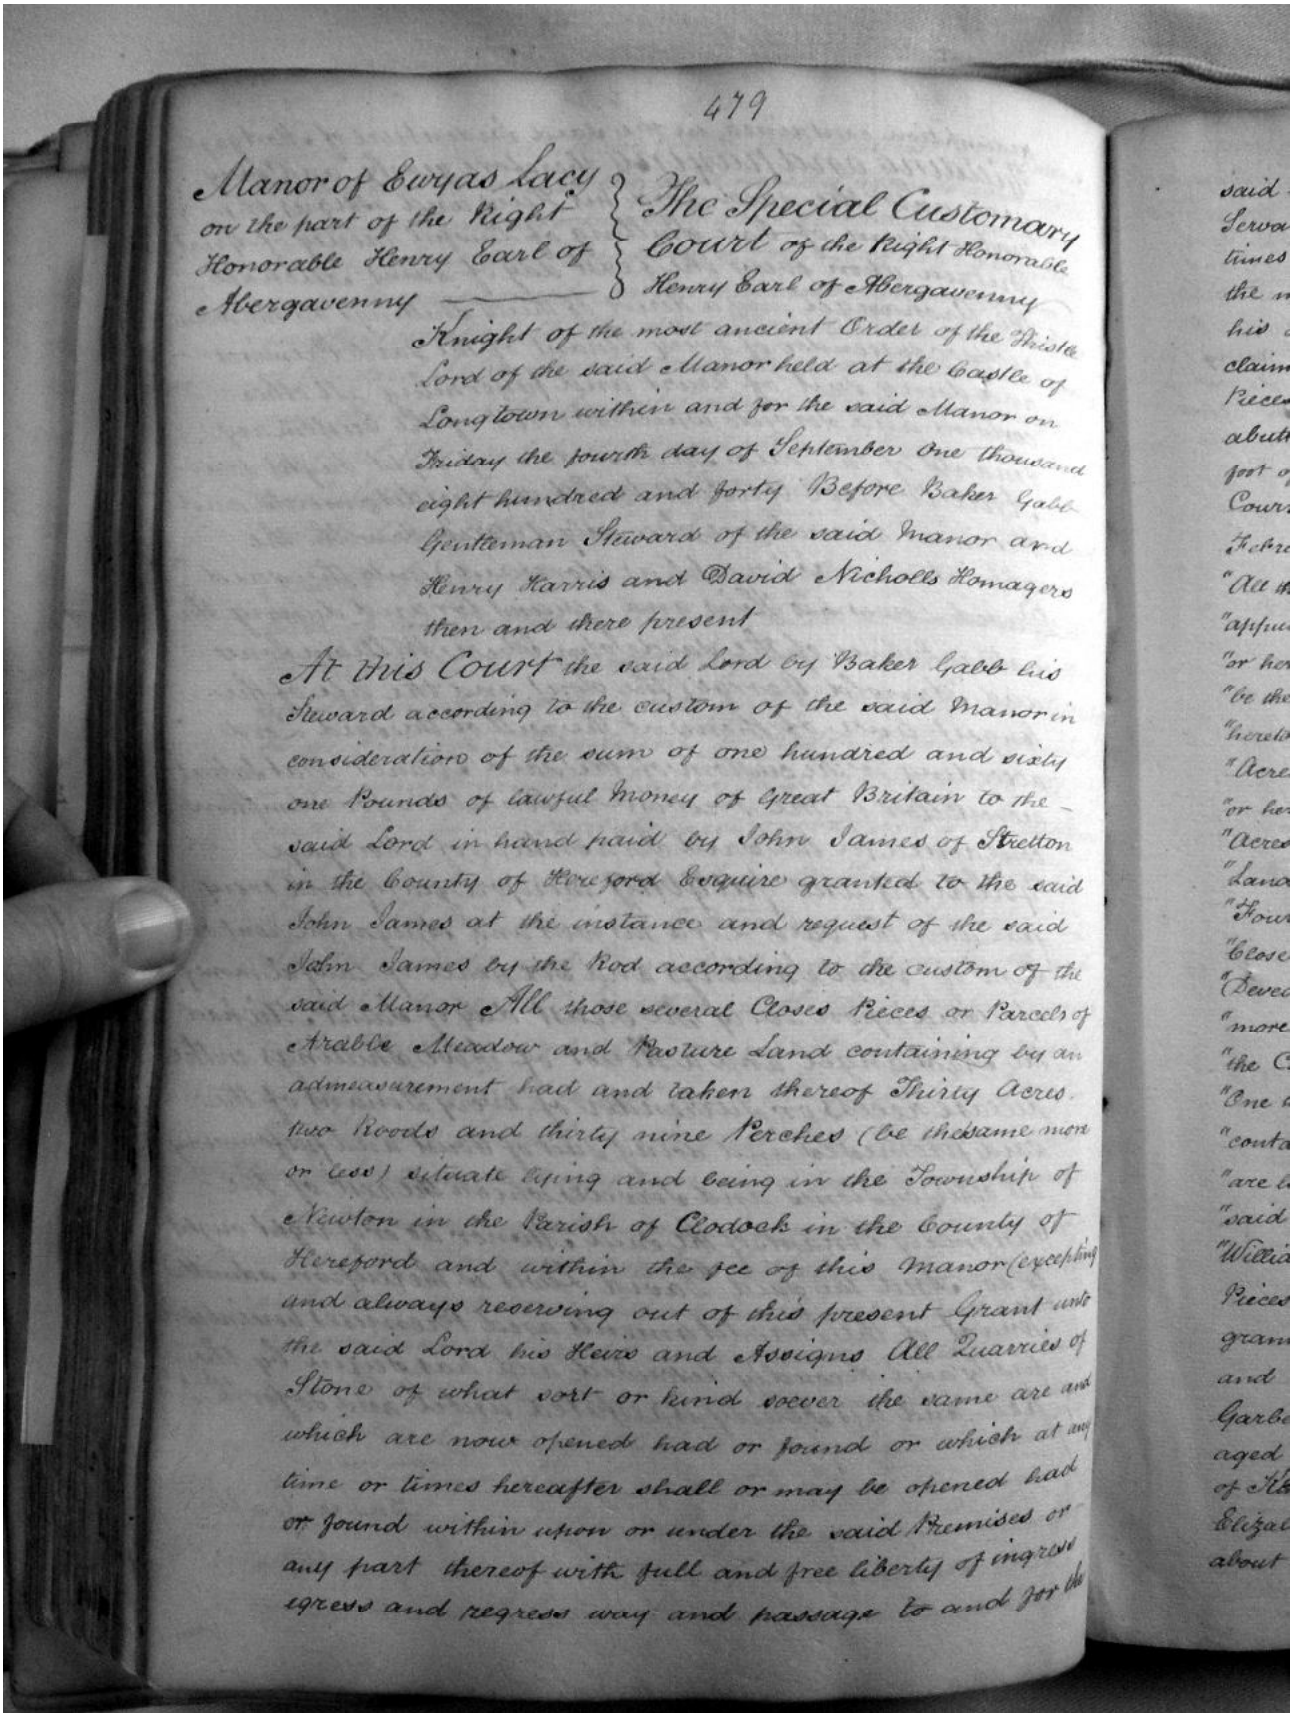 479
Manor of Ewyas Lacy
on the part of the Right
Honorable Henry Earl of
Abergavenny
The Special Customary
Court of the Right Honorable
Henry Earl of Abergavenny
Knight of the most ancient Order of the Thistle
Lord of the said Manor held at the Castle of
Longtown within and for the said Manor on
Friday the fourth day of September One thousand
eight hundred and forty Before Baker Gabb
Gentleman Steward of the said Manor and
Henry Harris and David Nicholls Homagers
then and there present
At this Court the said Lord by Baker Gabb his
Steward according to the custom of the said Manor in
consideration of the sum of one hundred and sixty
one Pounds of lawful Money of Great Britain to the –
said Lord in hand paid by John James of Stretton
in the County of Hereford Esquire granted to the said
John James at the instance and request of the said
John James by the Rod according to the custom of the
said Manor All those several Closes Pieces or Parcels of
Arable Meadow and Pasture Land containing by an
admeasurement had and taken thereof Thirty Acres
two Roods and thirty nine Perches (be the same more
or less) situate lying and being in the Township of
Newton in the Parish of Clodock in the County of
Hereford and within the fee of this Manor (excepting
and always reserving out of this present Grant unto
the said Lord his Heirs and Assigns All Quarries of
Stone of what sort or kind soever the same are and
which are now opened had or found or which at any
time or times hereafter shall or may be opened had
or found within upon or under the said Premises or
any part thereof with full and free liberty of ingress
egress and regress way and passage to and for the
said
Serva
times
the m
his
claim
Pieces
abutt
foot of
Cour
Febru
"All th
"appu
"or her
"be the
"hereto
"Acre
"or her
"Acres
"Land
"Four
"Close
"Deve
"more
"the C
"One
"conta
"are
"said
"Willia
Pieces
gran
and
Garbe
aged
of
Elizab
about